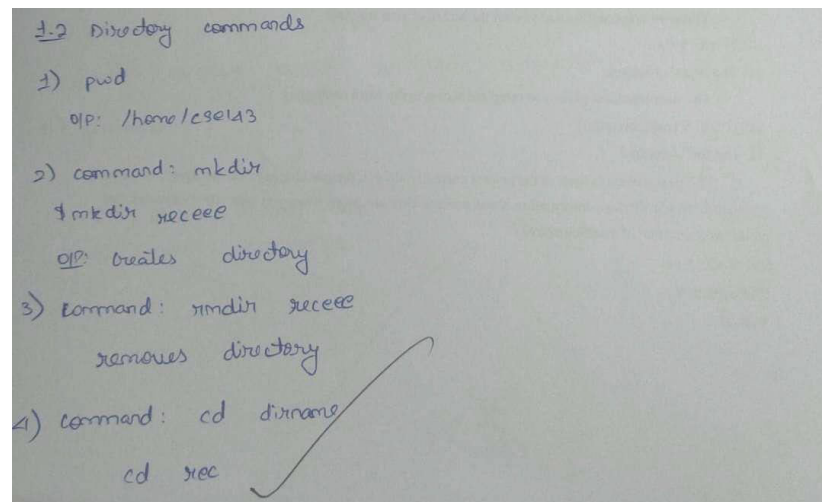 1.2 Directory commands
1) pwd
O/P: /home/cse143
2) command: mkdir
$ mkdir receee
O/P: creates directory
3) command: rmdir receee
removes directory
4) command: cd dirname
cd rec